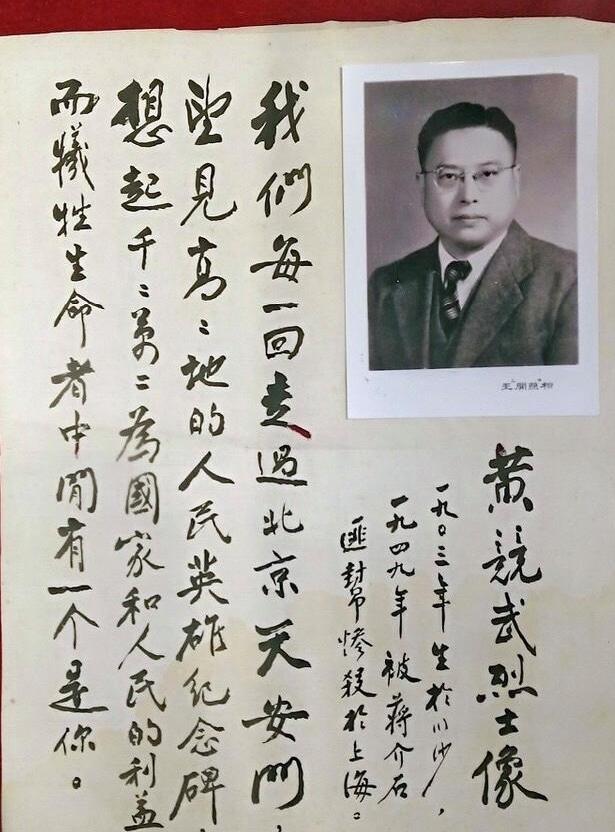 王開照相
黄競武烈士像
一九〇三年生於川沙，
一九四九年被蔣介石
匪幫惨殺於上海。
我們每一回走過北京天安門，
望見高〻地的人民英雄纪念碑，
想起千〻萬〻為國家和人民的利益
而犧牲生命者中間有一个是你。